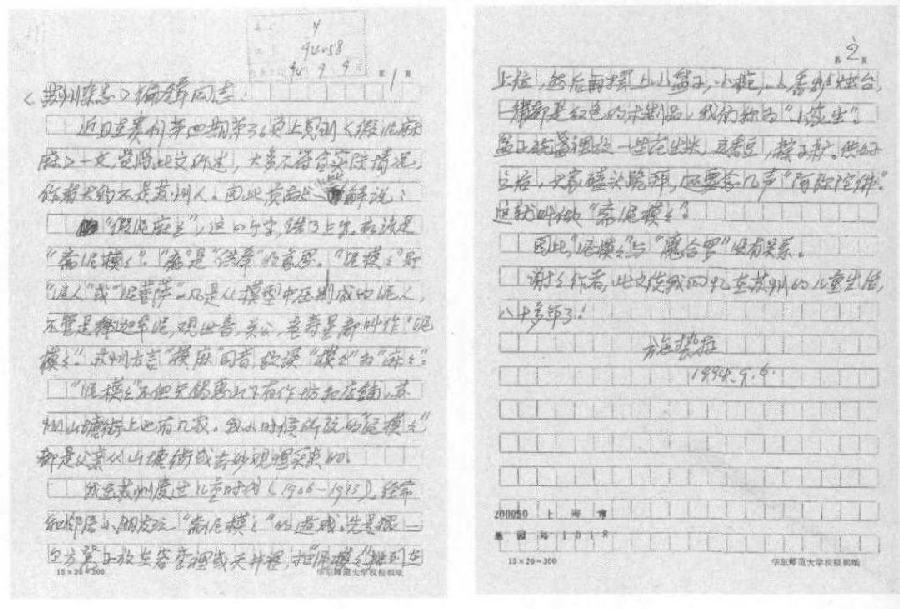 4
94058
94 9 9
第 1 页
《苏州杂志》编辑同志:
近日在贵刊第四期第36页上见到《假泥麻
麻》一文,觉得此文所述,大多不符合实际情况,
作者大约不是苏州人。因此
解说:
“假泥麻麻”,这四个字,错了上字,应该是
“斋泥模模”。“斋”是“供奉”的意思。“泥模模”即
“泥人”或“泥菩萨”,凡是从模型中压制成的泥人,
不管是释迦牟尼,观世音,关公,老寿星都叫作“泥
模模”。苏州方言“模麻”同音,故误“模模”为“麻麻”。
“泥模模”不但无锡惠山下有作坊和店铺,苏
州山塘街上也有几家。我小时候所玩的“泥模模”
都是父亲从山塘街或玄妙观里买来的。
我在苏州度过儿童时代(1906-1913),经常
和邻居小朋友玩“斋泥模模”的游戏。先是摆一
只方凳子放在客堂里或天井里,把“泥模模”排列在
15×20=300
华东师范大学校报稿纸
第 2 页
上位,然后再摆上小盆子,小碗,小香炉烛台,
一律都是红色的木制品,我们称为“小家生”。
盆子碗盏里放一些花生米,豆,瓜子片。供好
之后,大家磕头跪拜,还要念几声“南无阿弥陀佛”。
这就叫做“斋泥模模”。
因此,“泥模模”与“磨合罗”没有关系。
谢谢作者,此文使我回忆在苏州的儿童生活,
八十多年了!
施蛰存
1994.9.6.
200050 上海市
愚园路1018
15×20=300
华东师范大学校报稿纸